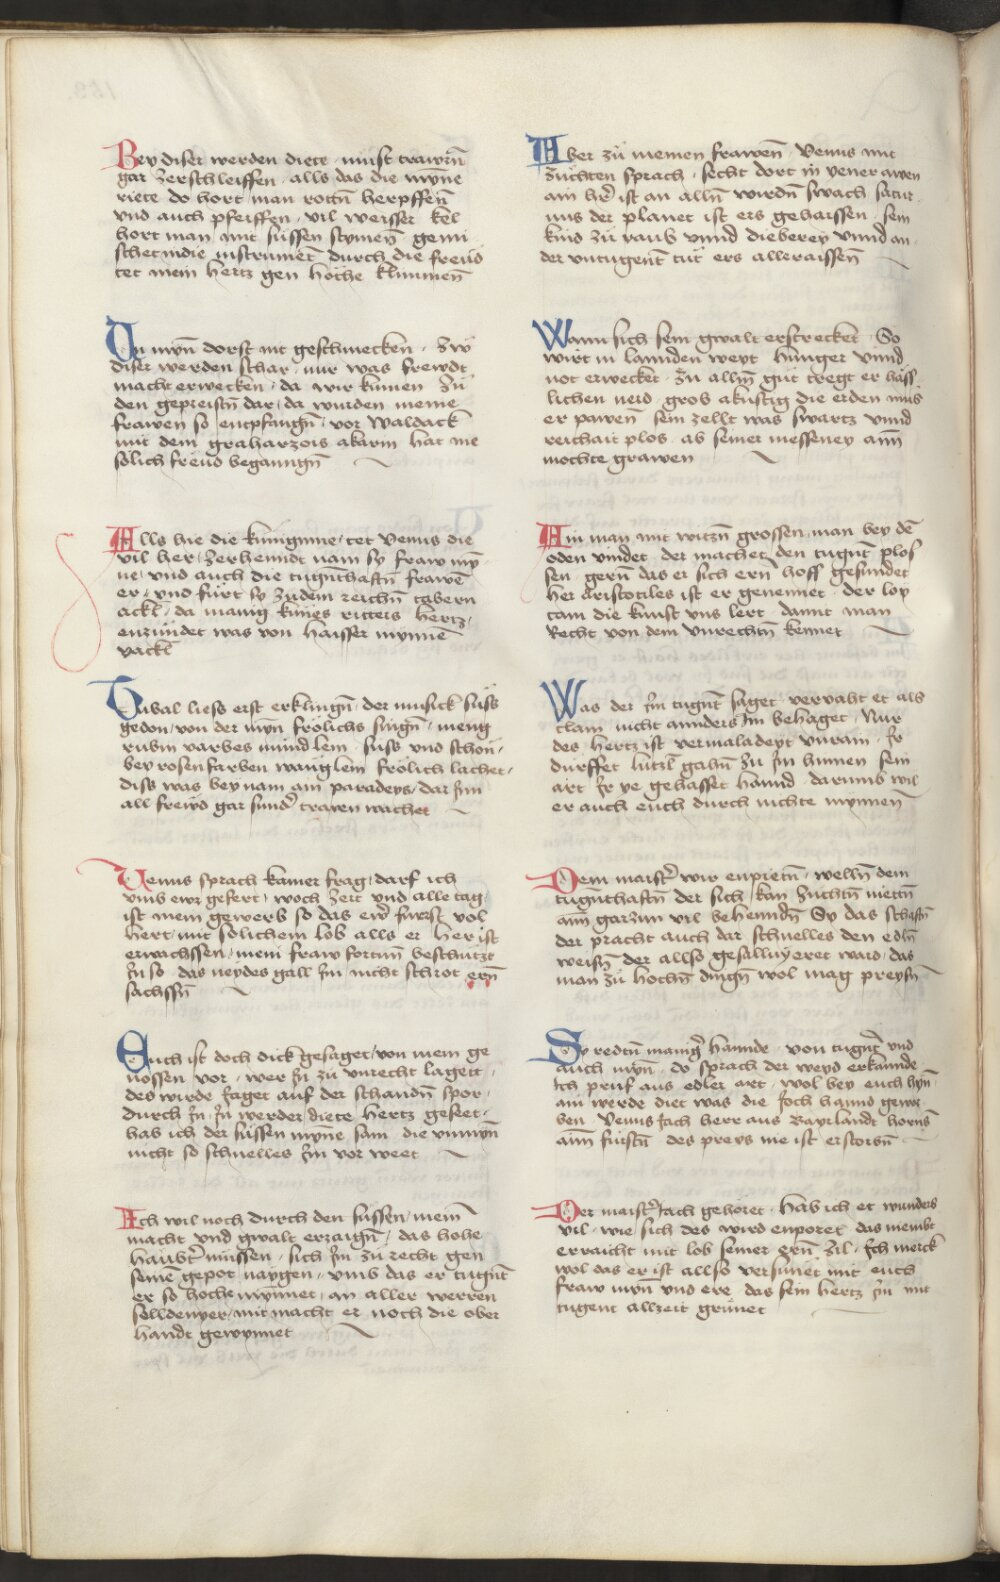 Bey diser werden diete must trawrñ
gar zerschleiffen . alls das die mẏne
riete do hort man rottñ herpffeñ
vnd auch pfeiffen . vil weisser kel
hort man mit süssen stymeñ gemi
schet indie instrumẽt durch die freüd
tet mein hertz gen höche klimmeñ
Un mẏñ dorft nit geschmecken . zw
diser werden schar . nur was frewdt
macht erwecken . da wir kümen zu
den gepreistñ dar / da wurden meine
frawen so entpfangñ . vor Waldack
mit dem graharzois akarin hat nie
sölich freüd begangñ
Alls hie die künigynne / tet Venus die
vil her / zerhenndt nam sy fraw mẏ
ne / vnd auch die tugnthaftñ frawẽ
er / vnd fürt sy zudem reichñ tabern
ackl / da manig künes ritters hertz /
enzündet was von haisser mynnẽ
vackl
Tubal liess erst erklingñ / der musick süss
gedon / von der mẏñ frölichs singñ / menig
rubin varbes mündlein . süss vnd schon /
bey rosenfarben wänglein frölich lachet /
diss was beynam ain paradeys / dar Inn
all frewd gar sunder trawen wachet
Venus sprach kamer frag / darf ich
vmb ewr gefert / woch zeit vnd alle tag /
ist mein gewerb so das ew̃ fürst vol
hert / mit sölichem lob alls er her ist
erwachssen / mein fraw fortuñ beschützt
Jn so das neydes gall Jm nicht schrot erñ
sachssñ
Euch ist doch dick gesaget / von mein ge
nossen vor / wer Jn zu vnrecht laget /
des wirde Jaget auf der schandñ spor /
durch Jn Jn werder diete hertz geseet /
hab ich der süssen mẏne sam die vnmẏñ
nicht so schnelles Jm vor weet
Ich wil noch durch den süssen / mein
macht vnd gwalt erzaigñ / das hohe
haübter müssen / sich Jm zu recht gen
seinẽ gepot naygen / vmb das er tugñt
er so hoche mynnet / an aller werren
solldenyer / mit macht er noch die ober
handt gewynnet
Aber zü meinen frawen̄ Venus mit
züchten sprach . secht dort in yener awen
ain her ist an alln wirdñ swach Satur
nus der planet ist ers gehaissen . sein
kind zü raub vnnd dieberey vnnd an
der vntugent tüt ers alleraissen̄
Wann sich sein gwalt erstrecket . So
wirt in lannden weyt hunger vnnd
not erwecket . Zu allm̄ güt tregt er häss
lichen neid . grob akustig die erden müs
er pawen̄ sein zellt was swartz vnnd
reichait plos ab seiner messeney aim̄
mochte grawen
Ain man mit witzñ grossen / man bey dẽ
oden vindet . der machet den tugnt plos
sen . gern̄ das er sich ern̄ hoff gesundet
her Aristotiles ist er genennet . der loy
cam die kunst vns lert . damit man
Recht von dem Vnrechtñ kennet
Was der Im tugnt saget . vervaht et als
clain nicht annders Im behaget . Nur
des hertz ist vermaladeyt vnrain . Jr
dürffet lützl gahñ zu Jm hinnen sein
art Jr ye gehasset hannd . darumb wil
er auch euch durch nichte mynnen̄
Dem maister wir enpietñ . wellñ dem
tugnthaftñ der sich kan züchtñ nietñ
aim̄ garzun vil behenndñ Sy das schaftñ
der pracht auch dar schnelles den edlñ
weisñ der allso gesalluyeret ward / das
man zü hochñ dingñ wol mag preysñ
Sy redtñ maniger hannde . von tugnt vnd
auch mẏñ . do sprach der weyd erkannde
Ich prüf aus edler art . wol bey euch hyñ
ain werde diet was die Joch hannd gewor
ben Venus Jach herr aus Bayrlandt horñs
aim̄ fürstñ des preys nie ist erstorbñ
Der maister Jach gehöret . hab ich et wunders
vil . wie sich des wird enporet das meinbt
erraicht mit lob seiner ern̄ zil . Ich merck
wol das er ist allso versünet mit euch
fraw mẏñ vnd ere das sein hertz Jn mit
tugent allzeit grünet